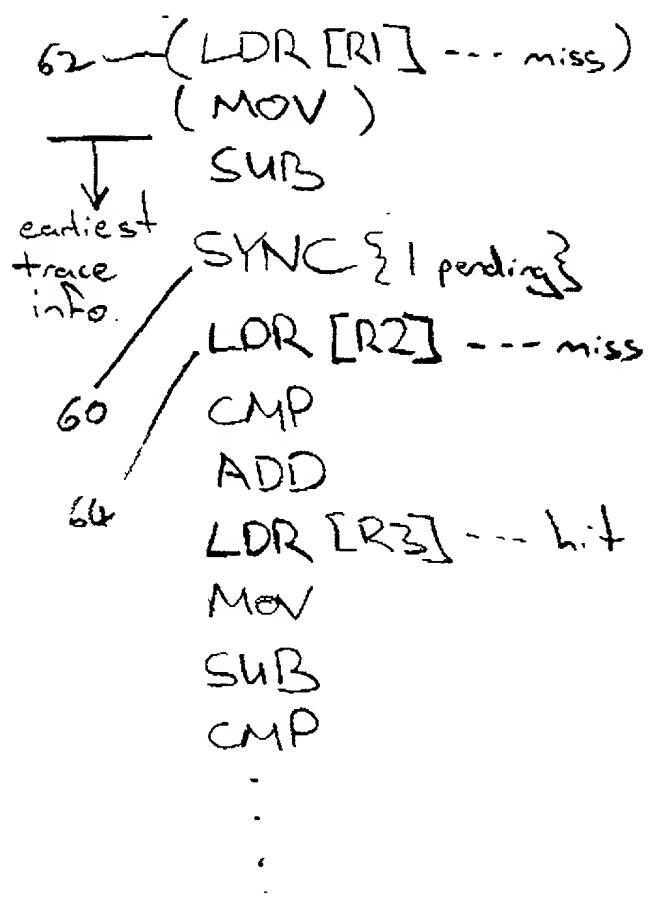 62 (LDR [R1] --- miss)
(MOV)
SUB
earliest
trace
info.
SYNC {1 pending}
LDR [R2] --- miss
60
CMP
ADD
64
LDR [R3] --- hit
MOV
SUB
CMP